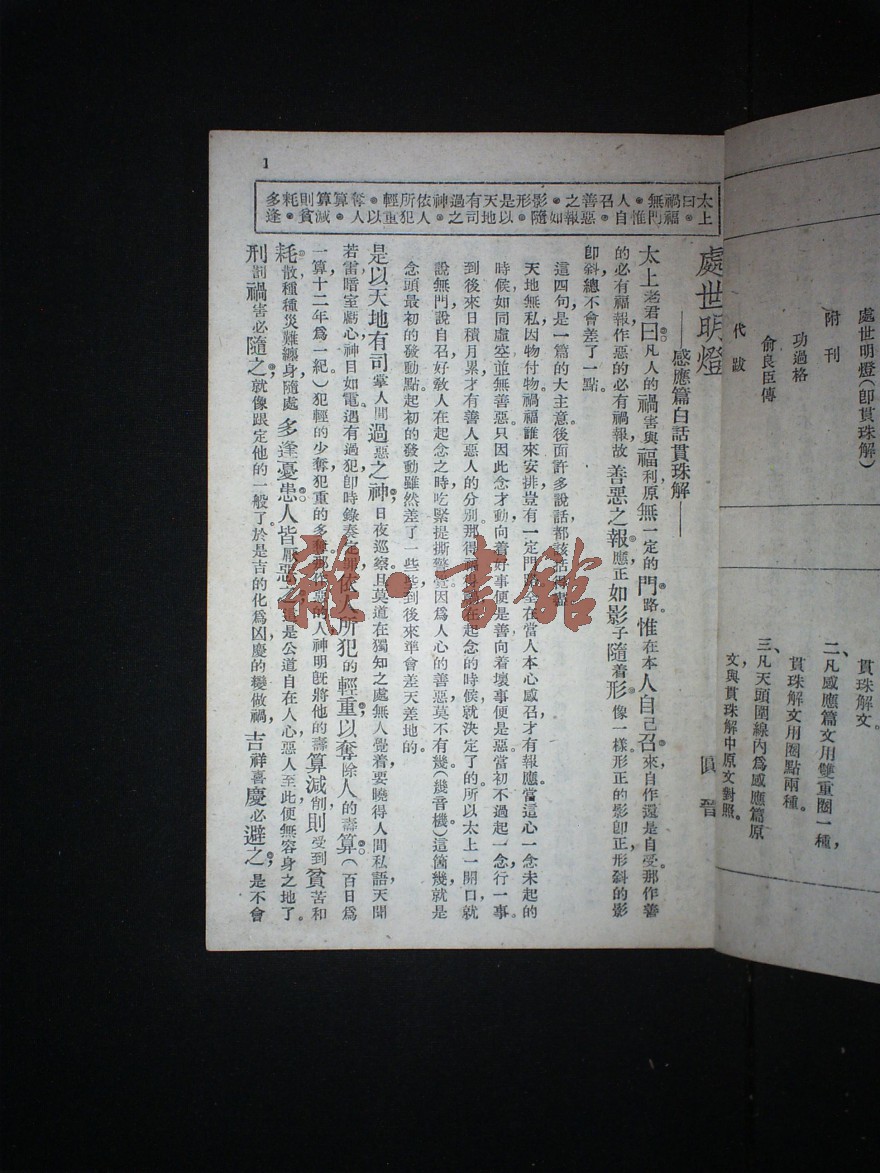 處世明燈(即貫珠解)
附刊
功過格
俞良臣傳
代跋
貫珠解文。
二、凡感應篇文用雙重圈一種，
貫珠解文用圈點兩種。
三、凡天頭圍線內爲感應篇原
文與貫珠解中原文對照。
1
太上曰。禍福無門。惟人自召。善惡之報。如影隨形。是以天地有司過之神。依人所犯輕重。以奪人算。算減則貧耗。多逢
處世明燈
——感應篇白話貫珠解——
圓晉
太上老君曰凡人的禍害與福利原無一定的門路惟在本人自己召來自作還是自受那作善
的必有福報作惡的必有禍報故善惡之報應正如影子隨着形像一樣形正的影卽正形斜的影
卽斜總不會差了一點。
這四句是一篇的大主意後面許多說話都該括得盡
天地無私因物付物。禍福誰來安排豈有一定門路全在當人本心感召才有報應當這心一念未起的
時候如同虛空並無善惡只因此念才動向着好事便是善向着壞事便是惡當初不過起一念行一事。
到後來日積月累才有善人惡人的分別那得在起念的時候就決定了的所以太上一開口就
說無門說自召好教人在起念之時吃緊提撕警覺因爲人心的善惡莫不有幾(幾音機)這箇幾就是
念頭最初的發動點起初的發動雖然差了一些些到後來準會差天差地的。
是以天地有司掌人間過惡之神日夜巡察且莫道在獨知之處無人覺着要曉得人間私語天聞
若雷暗室虧心神目如電遇有過犯卽時錄奏定罪依人所犯的輕重以奪除人的壽算(百日爲
一算十二年爲一紀)犯輕的少奪犯重的多奪那作惡的人神明既將他的壽算減削則受到貧苦和
耗散種種災難纏身隨處多逢憂患人皆厭惡這是公道自在人心惡人至此便無容身之地了。
刑罰禍害必隨之就像跟定他的一般了於是吉的化爲凶慶的變做禍，吉祥喜慶必避之是不會
雜·書館